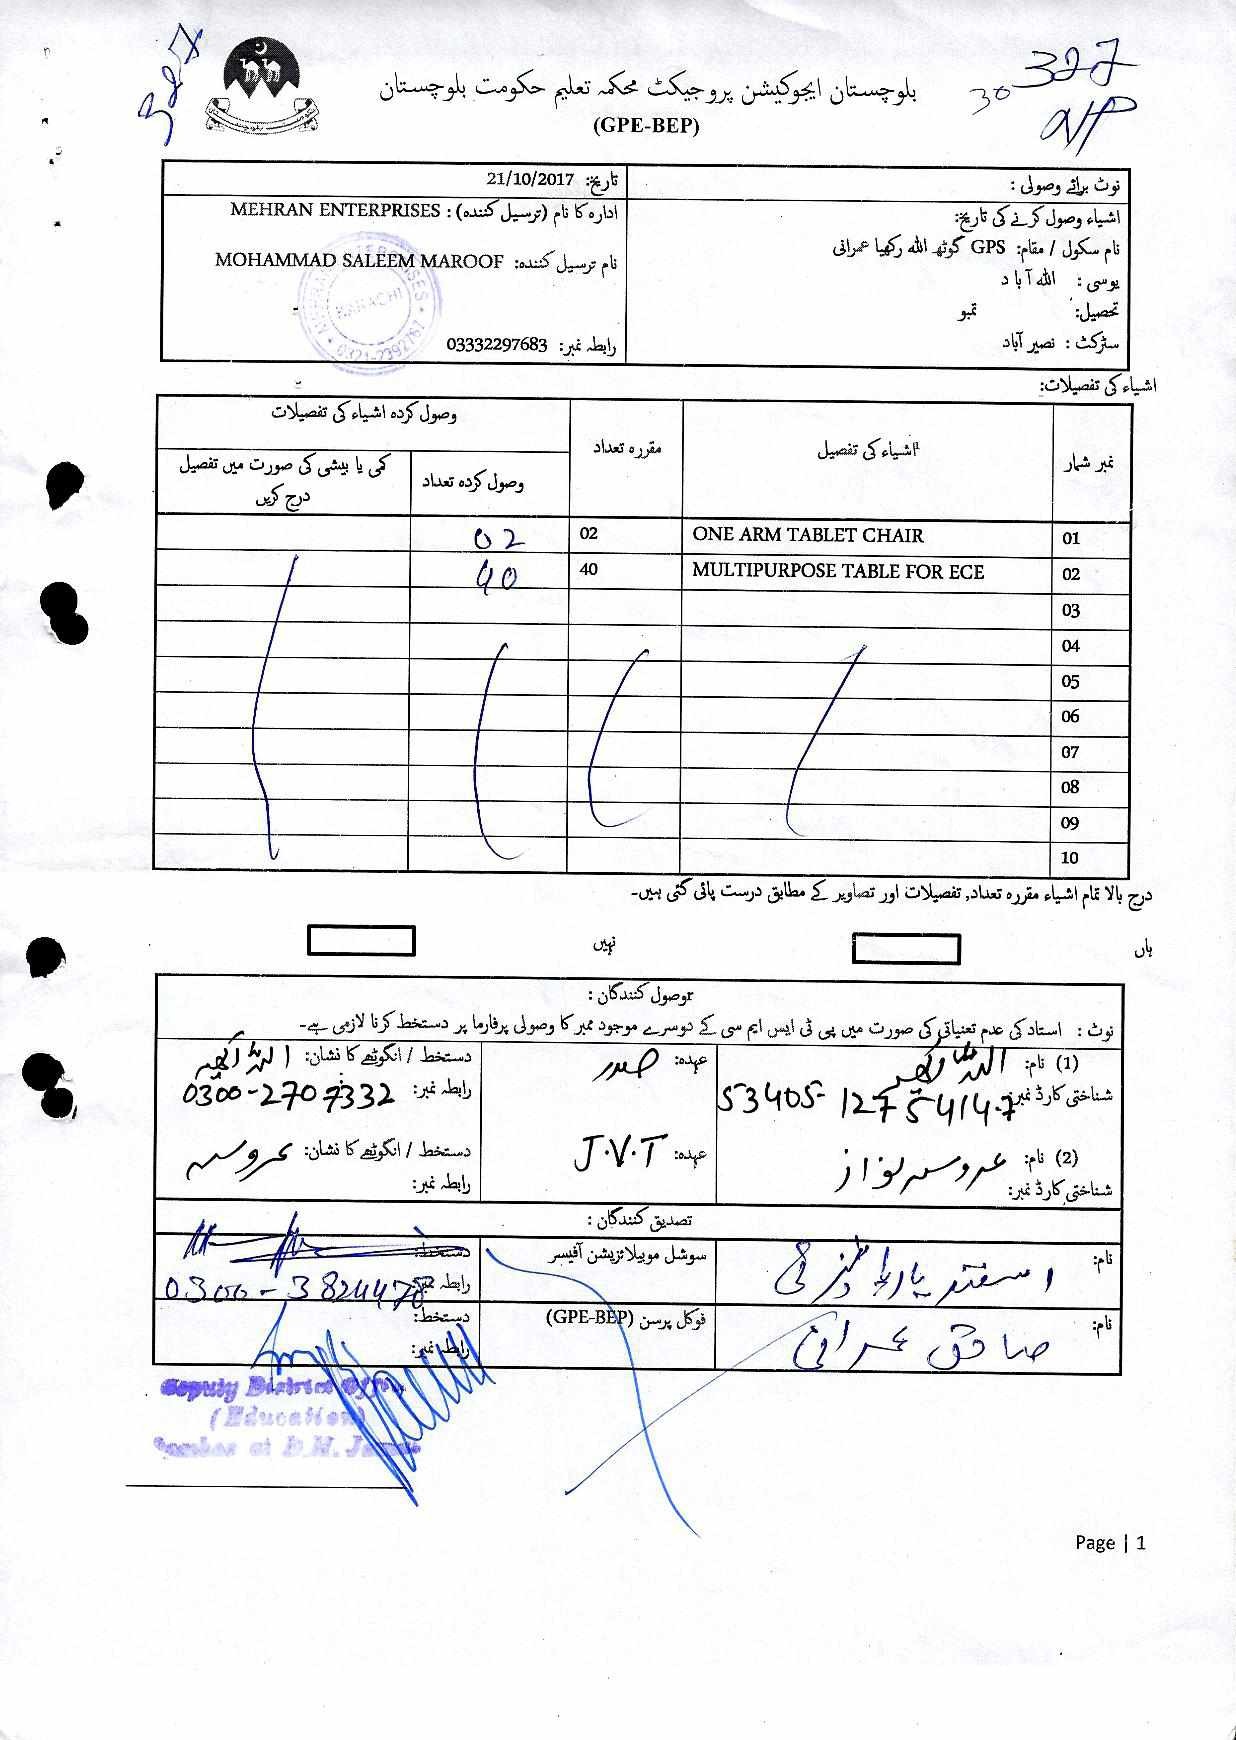 327
30
بلوچستان ایجوکیشن پروجیکٹ محکمہ تعلیم حکومت بلوچستان
(GPE-BEP)
نوٹ برائے وصولی :
تاریخ: 21/10/2017
اشیاء وصول کرنے کی تاریخ:
ادارہ کا نام (ترسیل کنندہ) : MEHRAN ENTERPRISES
نام سکول / مقام: GPS گوٹھ اللہ رکھیا عمرانی
نام ترسیل کنندہ: MOHAMMAD SALEEM MAROOF
یوسی : اللہ آباد
KARACHI
تحصیل: تمبو
سٹرکٹ : نصیر آباد
رابطہ نمبر: 03332297683
اشیاء کی تفصیلات:
نمبر شمار
اشیاء کی تفصیل
مقررہ تعداد
وصول کردہ اشیاء کی تفصیلات
وصول کردہ تعداد
کمی یا بیشی کی صورت میں تفصیل درج کریں
01 ONE ARM TABLET CHAIR 02 02
02 MULTIPURPOSE TABLE FOR ECE 40 40
03
04
05
06
07
08
09
10
درج بالا تمام اشیاء مقررہ تعداد, تفصیلات اور تصاویر کے مطابق درست پائی گئی ہیں۔
ہاں
نہیں
وصول کنندگان :
نوٹ : استاد کی عدم تعیناتی کی صورت میں پی ٹی ایس ایم سی کے دوسرے موجود ممبر کا وصولی پرفارما پر دستخط کرنا لازمی ہے۔
(1) نام: اللہ رکھیہ
عہدہ: صدر
دستخط / انگوٹھے کا نشان: اللہ رکھیہ
شناختی کارڈ نمبر: 53405-1275414-7
رابطہ نمبر: 0300-2707332
(2) نام: عروسہ نواز
عہدہ: J.V.T
دستخط / انگوٹھے کا نشان: عروسہ
شناختی کارڈ نمبر:
رابطہ نمبر:
تصدیق کنندگان :
نام:
سوشل موبیلائزیشن آفیسر
دستخط:
رابطہ نمبر: 0300-3824478
نام: صادق عمرانی
فوکل پرسن (GPE-BEP)
دستخط:
رابطہ نمبر:
Deputy District Officer
(Education)
Page | 1